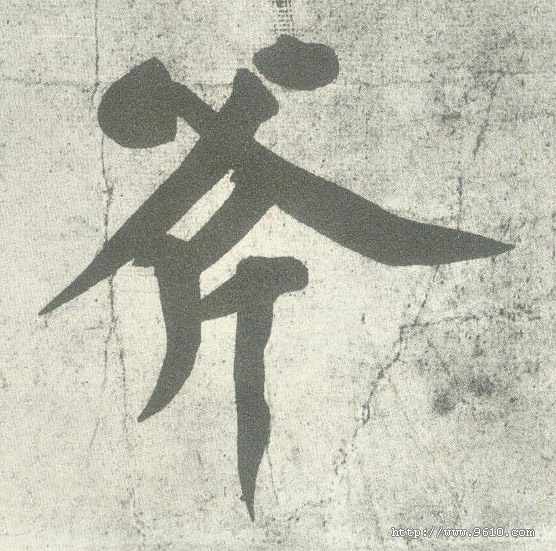 斧
http://www.9610.com